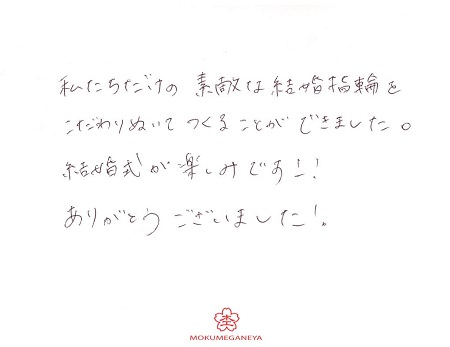 私たちだけの 素敵な結婚指輪を
こだわりぬいて つくることができました。
結婚式が楽しみです!!
ありがとう ございました!。
杢
MOKUMEGANEYA